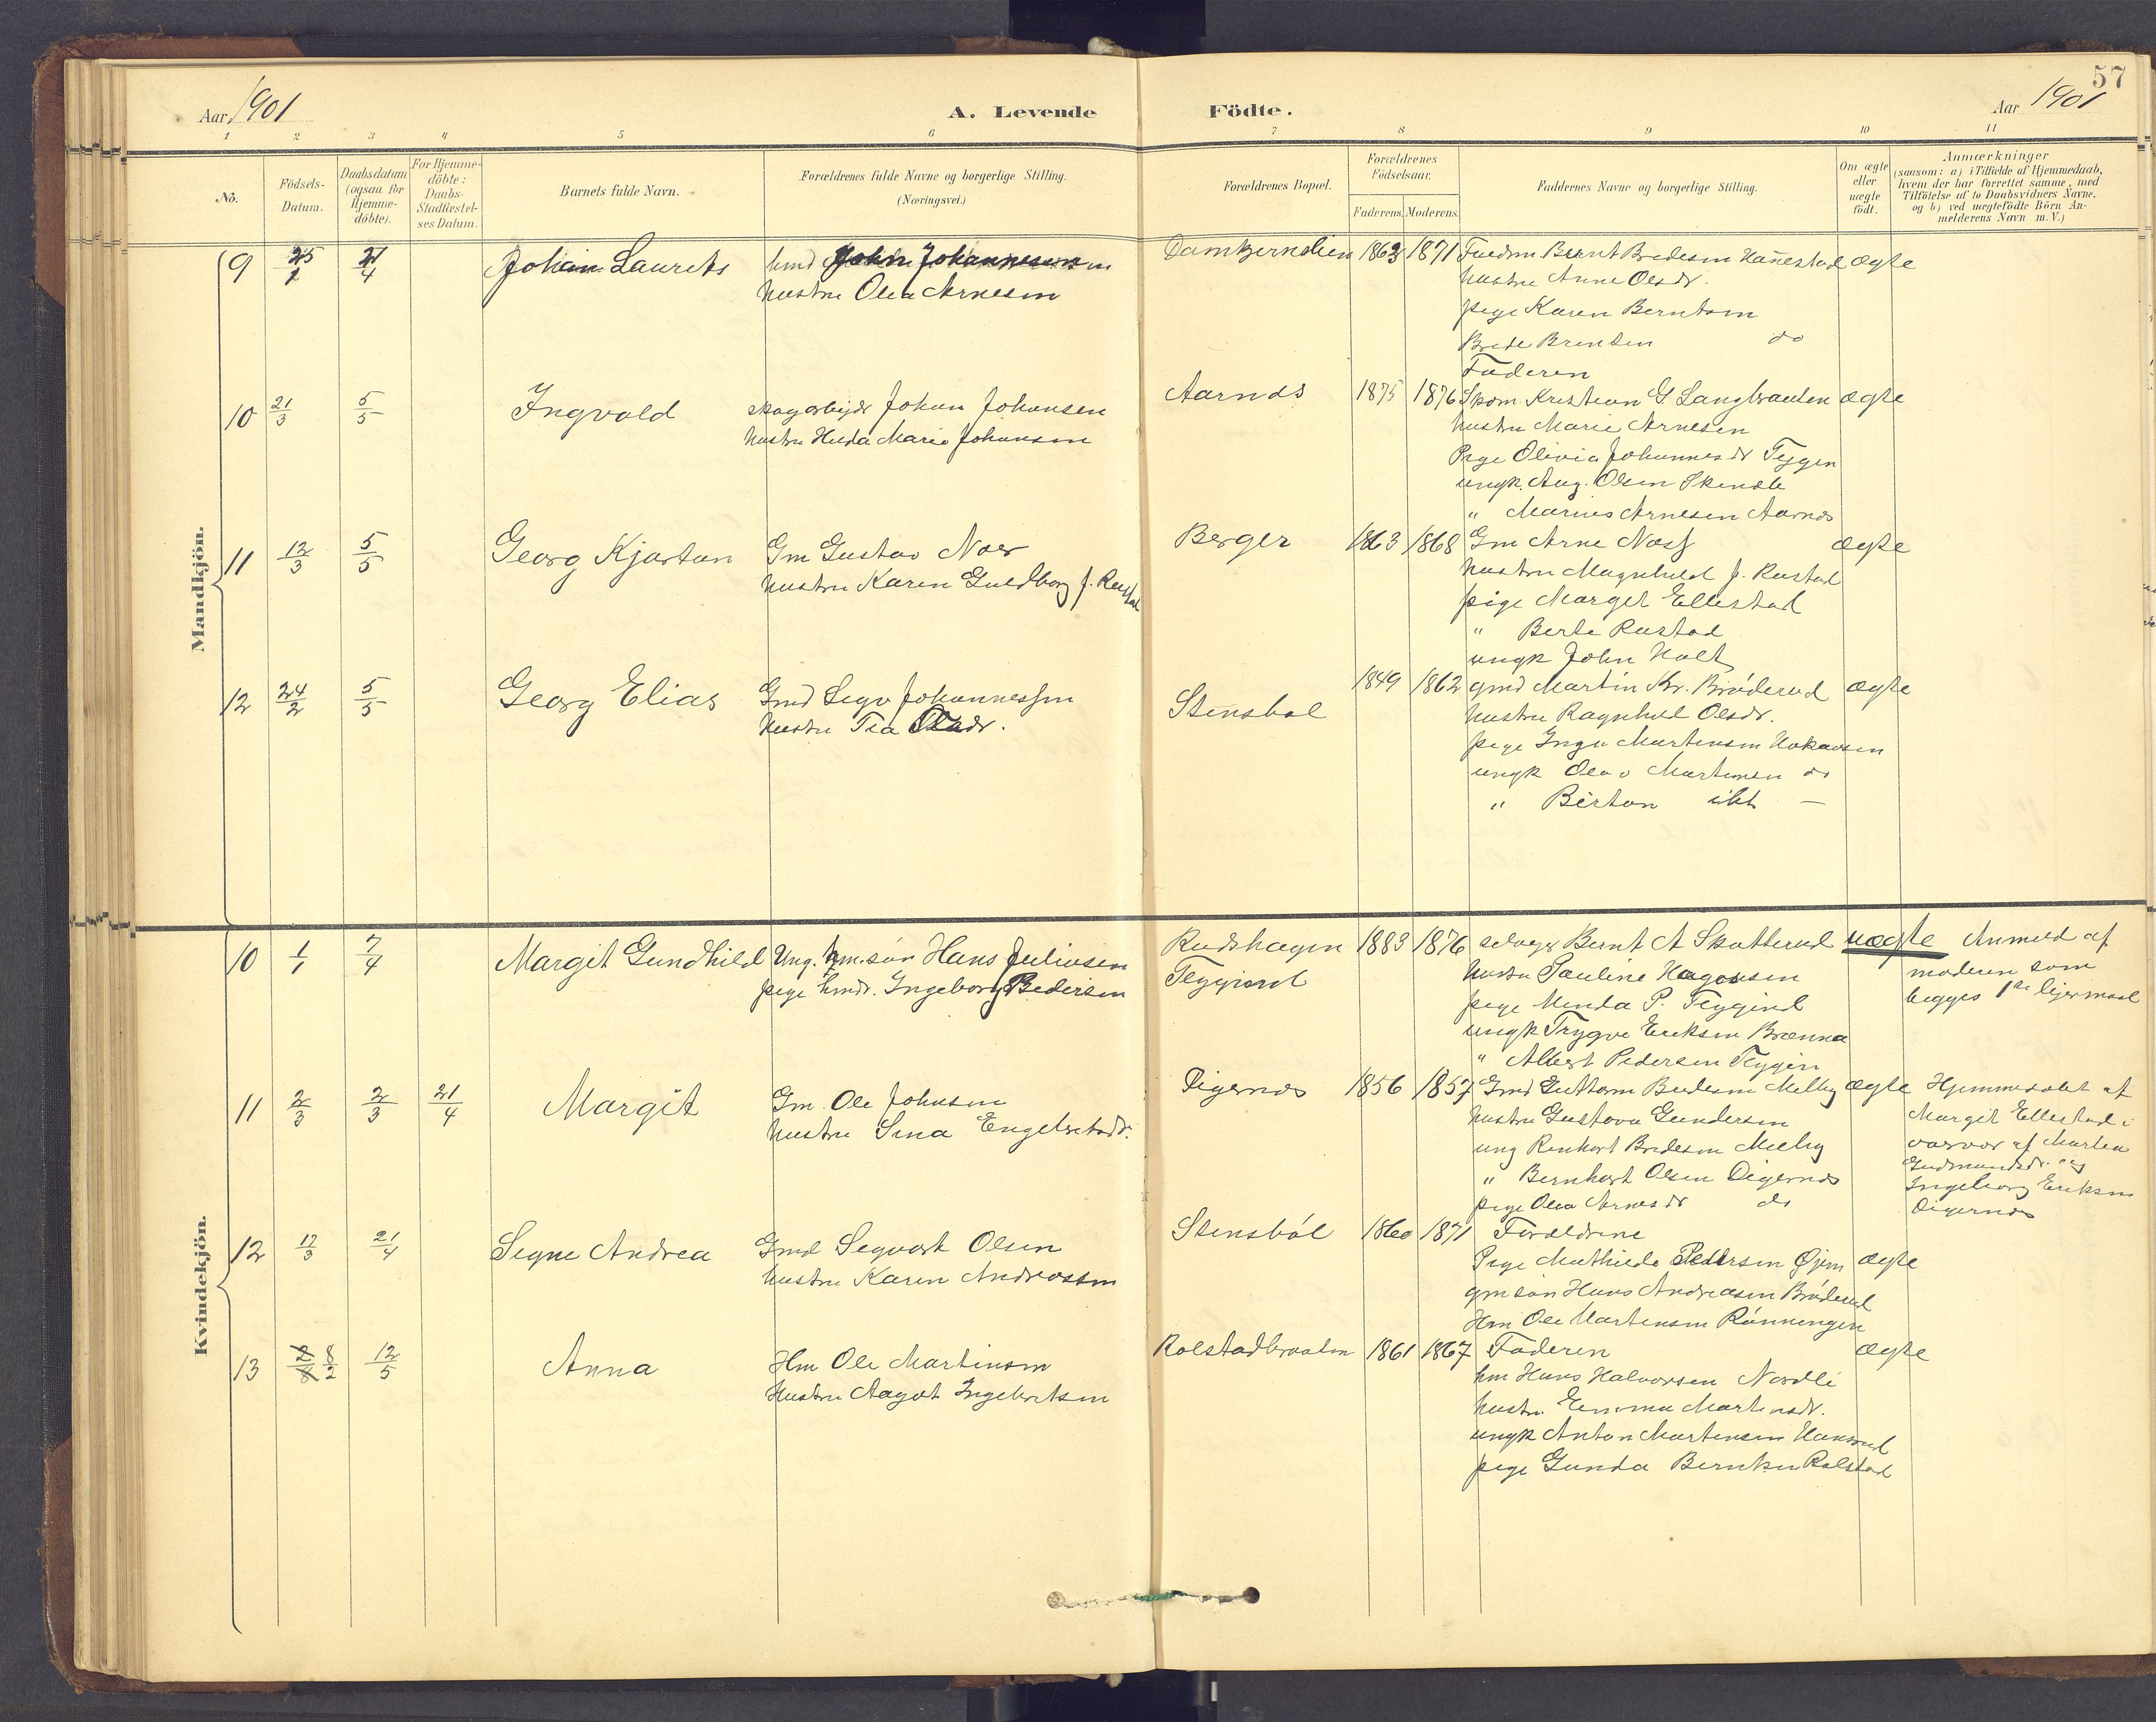 57
Aar 1901
A. Levende Födte.
Aar 1901
1 2 3 4 5 6 7 8 9 10 11
No.
Födsels-Datum.
Daabsdatum (ogsaa for Hjemme-döbte).
For Hjemme-döbte: Daabs-Stadfæstel-ses Datum.
Barnets fulde Navn.
Forældrenes fulde Navne og borgerlige Stilling. (Næringsvei.)
Forældrenes Bopæl.
Forældrenes Födselsaar.
Faderens. Moderens.
Faddernes Navne og borgerlige Stilling.
Om ægte eller uægte födt.
Anmærkninger (saasom: a) i Tilfælde af Hjemmedaab, hvem der har forrettet samme, med Tilföielse af to Daabsvidners Navne, og b) ved uægtefödte Börn An-melderens Navn m. V.)
Mandkjön.
9 21/4 Johan Laurits
hmd John Johannessen
hustru Olea Arnesen
Damtjernslien 1863 1871
Bernt Bredesen ægte
hustru Anne Olsdr.
pige Karen Berntsen
Brede Brentsen do
Faderen
10 21/3 5/5 Ingvald
skogarbejdr Johan Johansen
hustru Hilda Marie Johansen
Aarnæs 1875 1876
Kristian G Langbraaten ægte
hustru Marie Arnesen
Pige Olivia Johannesdr
ungk. Aug. Olsen
" Marius Arnesen Aarnæs
11 12/3 5/5 Georg Kjartan
Gm Gustav Noer
hustru Karen Guldborg f. Rustad
Berger 1863 1868
Gm Arne Næss ægte
hustru Magnhild f. Rustad
pige Margit Ellestad
" Berte Rustad
ungk John Holt
12 24/2 5/5 Georg Elias
Gmd Johannessen
hustru
Stensbøl 1849 1862
gmd Martin Kr. Brøderud ægte
hustru Ragnhild Olsdr.
pige Inga Martinsen
ungk Olav Martinsen do
" Birton ibt —
Kvindekjön.
10 1/1 7/4 Margit Gundhild
Ung. hm.søn Hans Juliusen
pige hmdr. Ingeborg Pedersen
Rudshagen 1883 1876
selveg Bernt A Skatterud uægte
hustru Pauline Hagensen
pige Minda P.
ungk Trygve Eriksen Brænna
" Albert Pedersen
Anmeld af
moderen som
begges 1ste lejermaal
11 2/3 2/3 21/4 Margit
Gm. Ole Johnsen
hustru Sina Engebretsdr.
Digernæs 1856 1857
Gmd Guttorm Bredesen Melby ægte
hustru Gustava Gundersen
ung Renhart Bredesen Melby
" Bernhart Olsen Digernæs
pige Olea Arnesdr do
Hjemmedøbt af
Margit Ellestad i
nærvær af Marthea
Gudmundsdr. og
Ingeborg Eriksen
Digernæs
12 17/3 21/4 Signe Andrea
Gmd Segvart Olsen
hustru Karen Andreassen
Stensbøl 1860 1871
Forældrene
Pige Mathilde Pedersen Øjern ægte
gm søn Hans Andreasen Brøderud
Hm Ole Martinsen Rønningen
13 8/2 12/5 Anna
Hm Ole Martinsen
Hustru Aagot Ingebretsen
Rolstadbraaten 1861 1867
Faderen ægte
hm Hans Halvorsen Nordli
hustru Emma Martinsdr.
ungk Anton Martinsen
pige Gunda Berntsen Rolstad